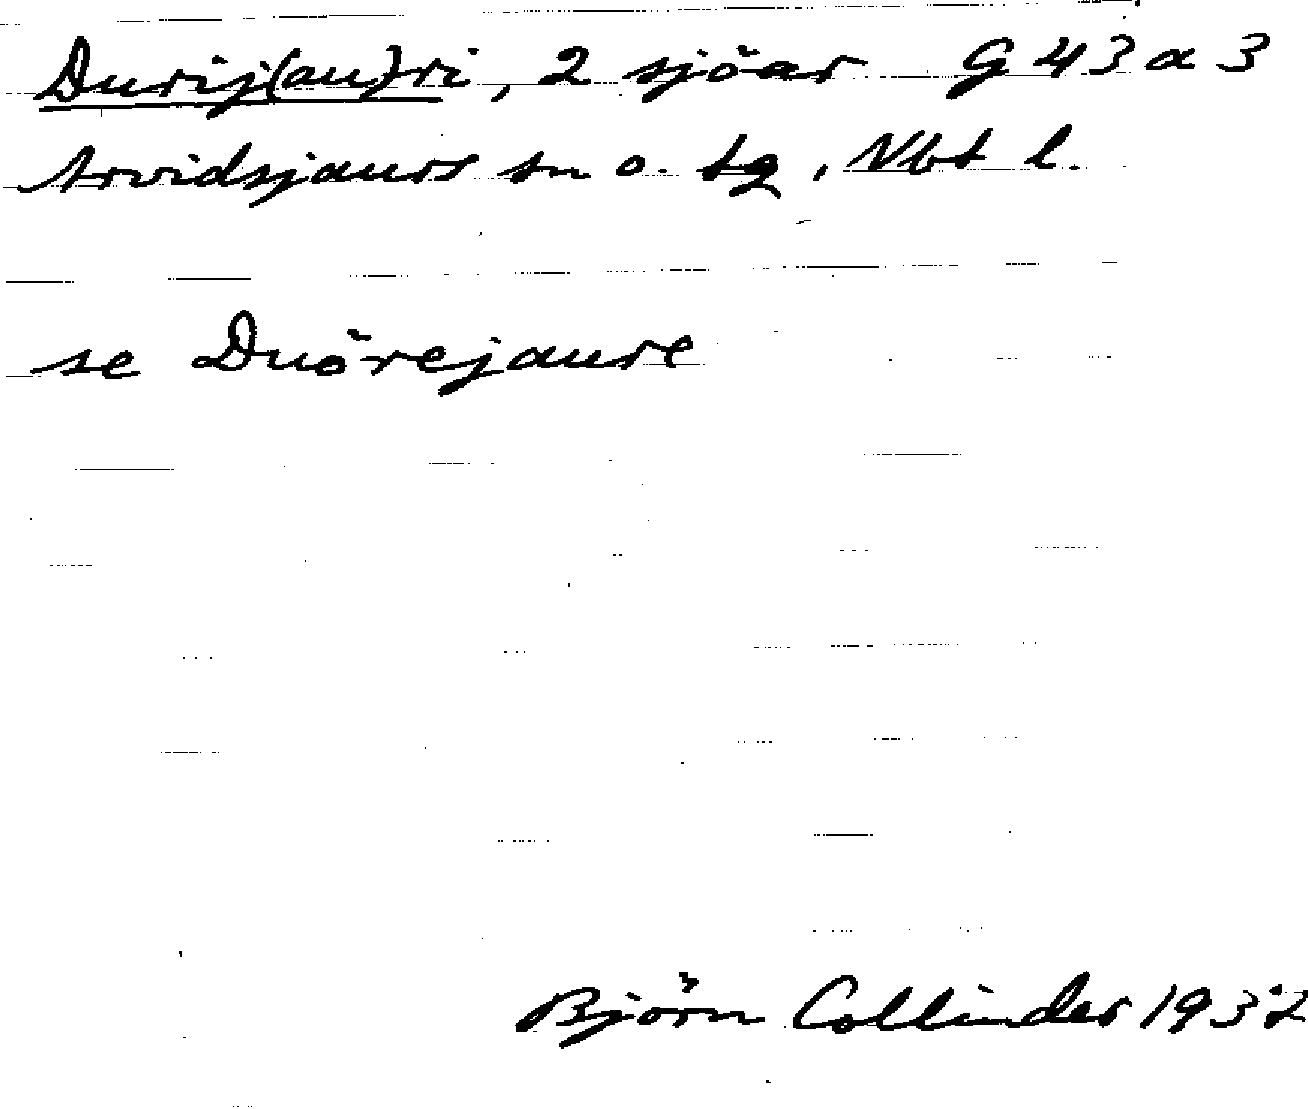 Durij(au)ri, 2 sjöar G 43 a 3
Arvidsjaurs sn o. tg, Vbt l.
se Duörejaure
Björn Collinder 1932